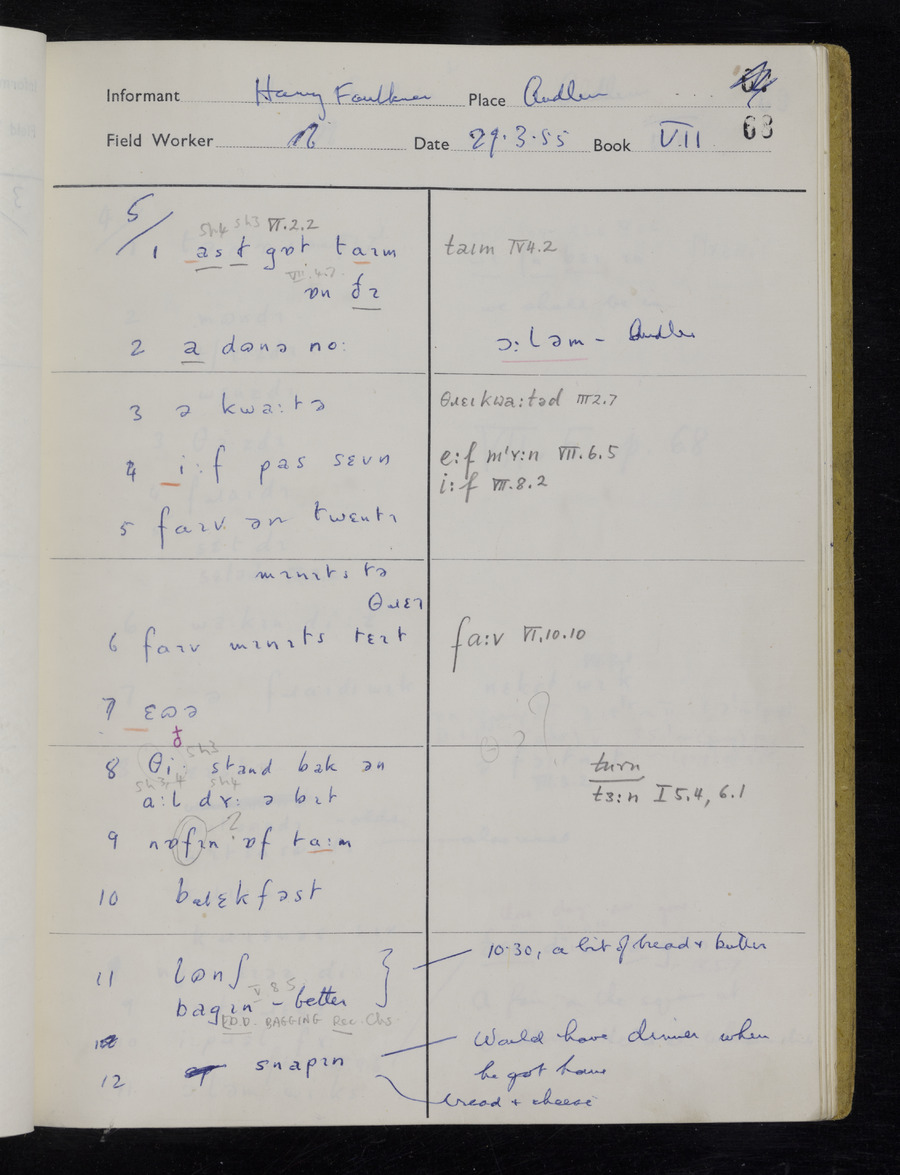 Informant Harry Faulkner Place Audlem
68
Field Worker Date 29.3.55 Book VII
5/
sh4 sh3 VI.2.2
1 ast gɒt taɪm
taɪm IV4.2
VII.4.7
ɒn ðɪ
2 a dənə no:
ɔ:ləm - Audlem
3 ə kwa:tə
θɹɛɪkwa:təd III2.7
4 i:f pas sɛvn
e:f m'ʏ:n VII.6.5
i:f VII.8.2
5 faɪv ən twɛntɪ
mɪnɪts tə
θɹɛɪ
6 faɪv mɪnɪts tɛɪt
fa:v VI.10.10
7 ɛɷə
ð
? ?
8 θi: stand bak ən
sh3
sh3,4 sh4
a:l dʏ: ə bɪt
turn
tɜ:n I5.4, 6.1
9 nɒfɪn ɒf ta:m
?
10 bɹɛkfəst
11 lɷnʃ
10.30, a bit of bread + butter
V 8 5
bagɪn - better
E.D.D. BAGGING Rec. Chs
12 snapɪn
Would have dinner when
he got home
bread + cheese